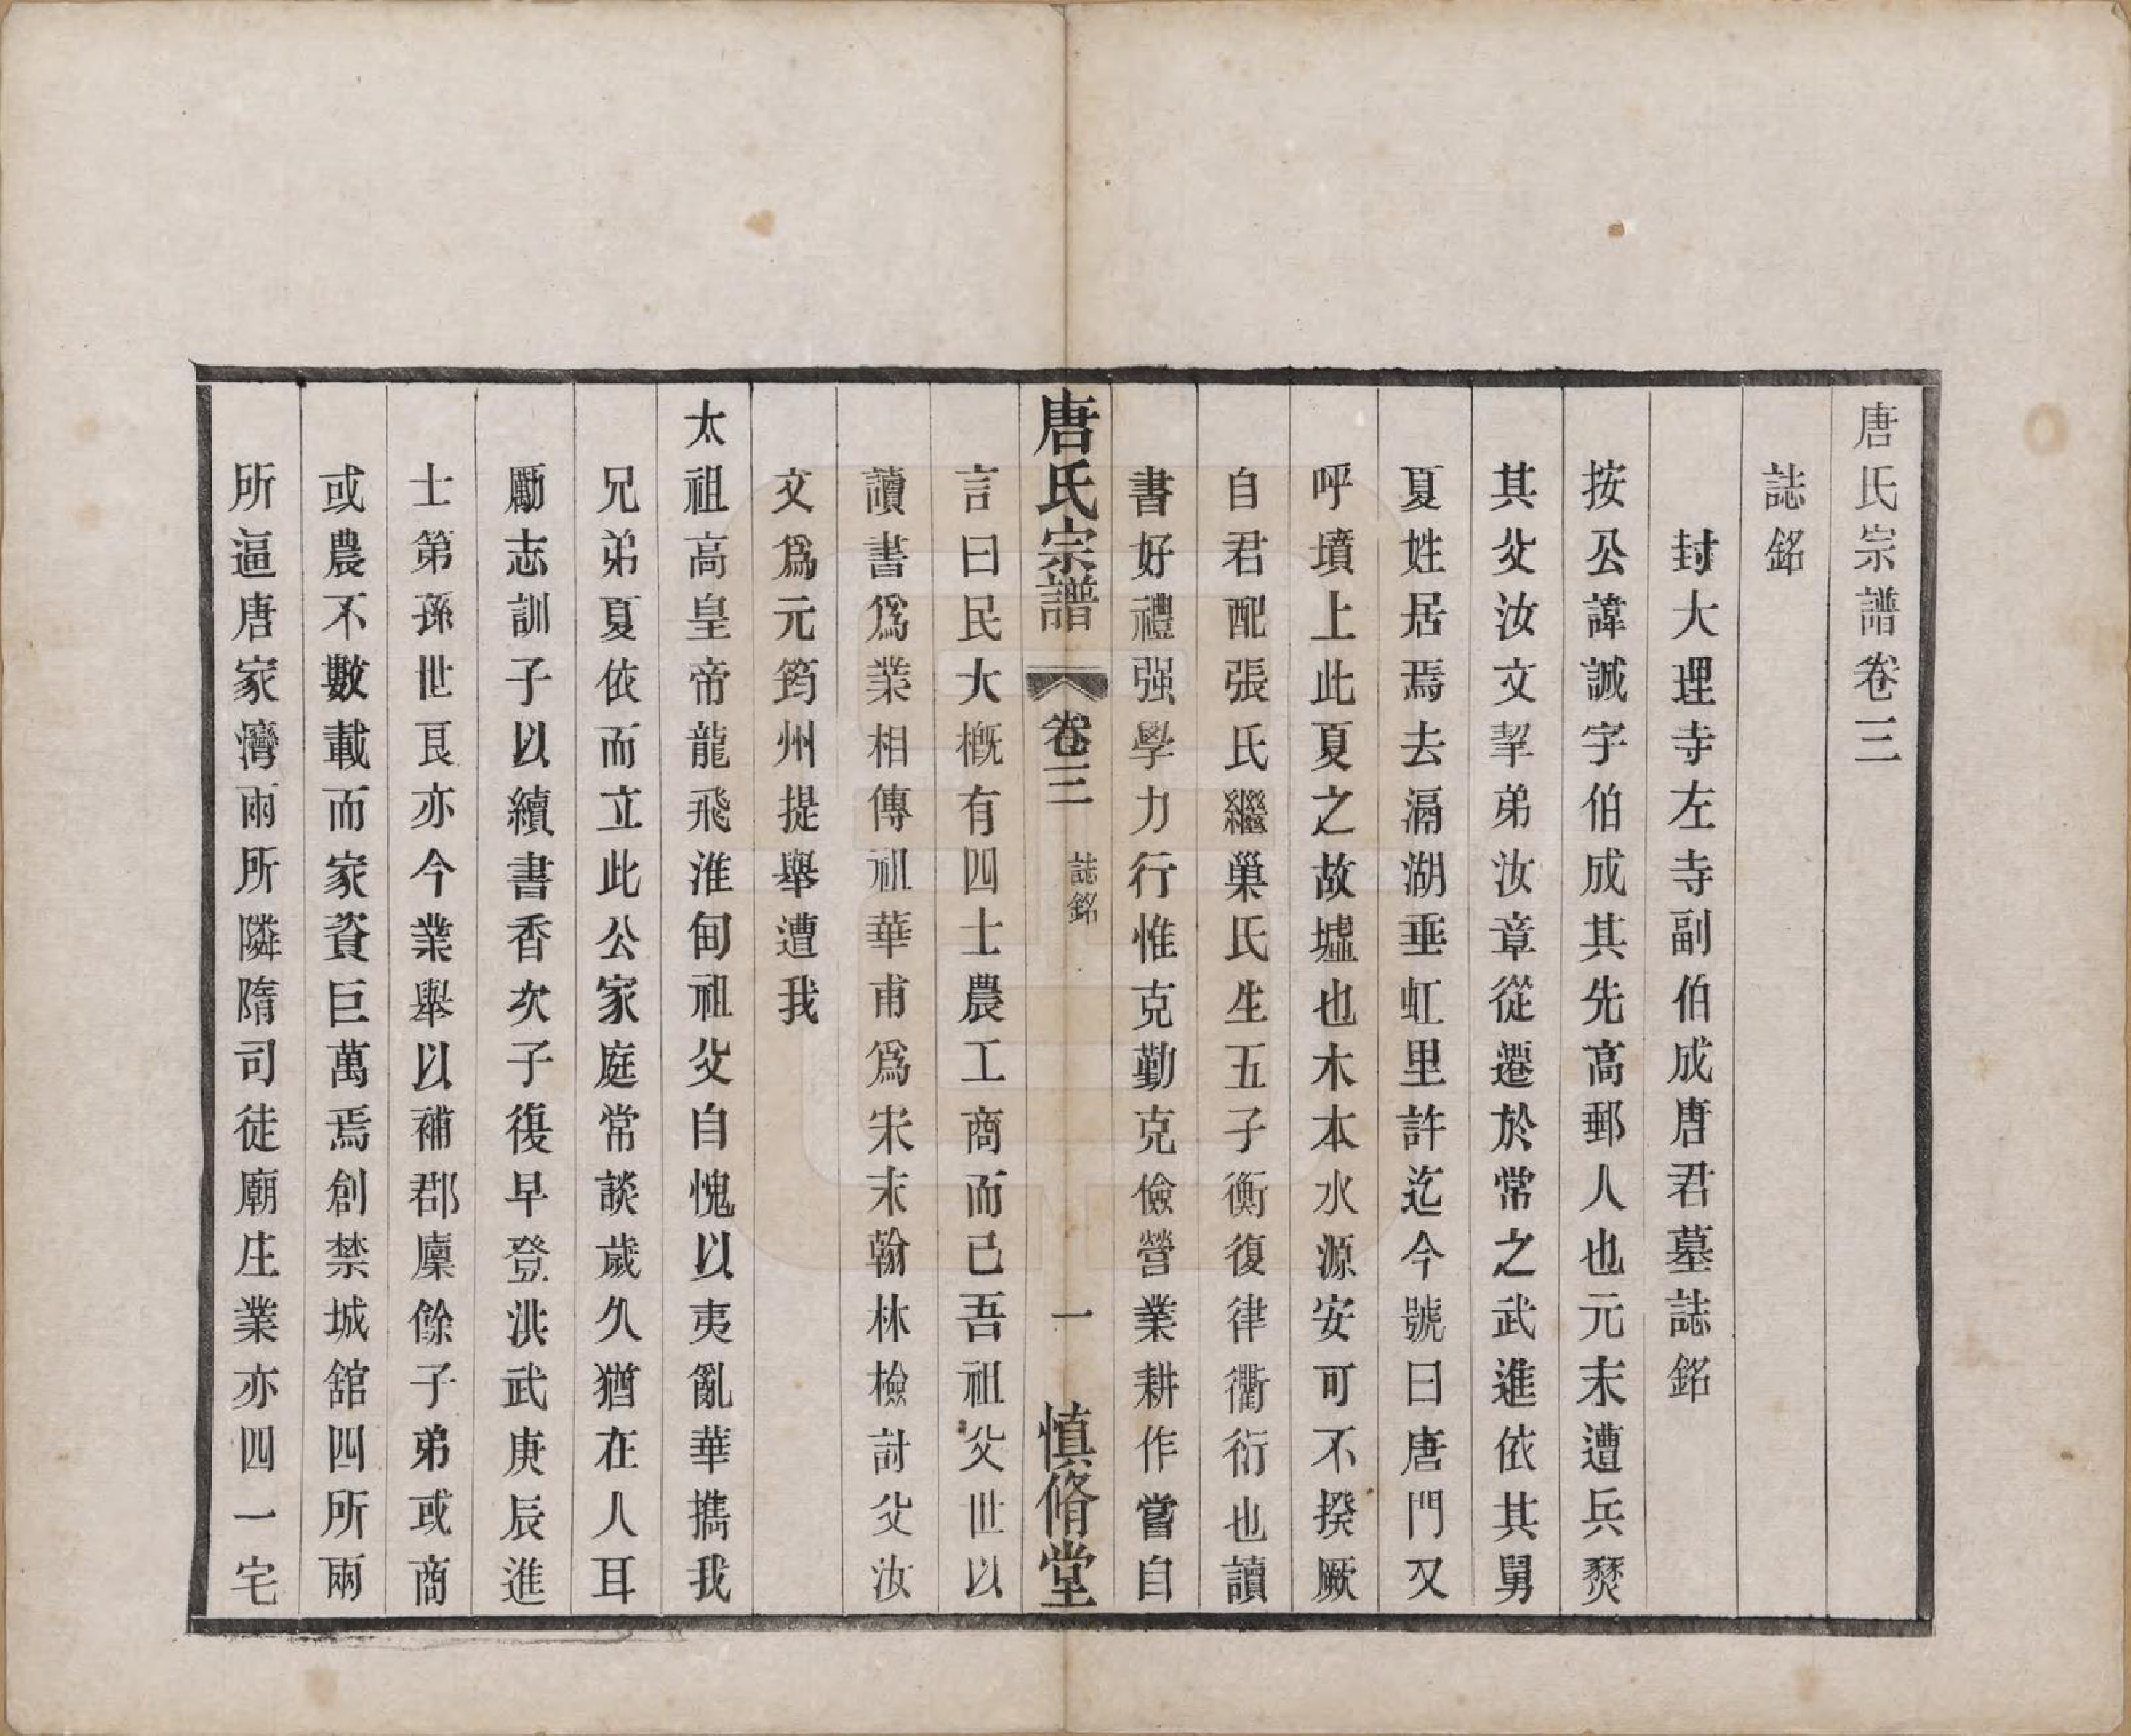 唐氏宗譜卷三
誌銘
封大理寺左寺副伯成唐君墓誌銘
按公諱誠字伯成其先高郵人也元末遭兵燹
其父汝文挈弟汝章從遷於常之武進依其舅
夏姓居焉去滆湖垂虹里許迄今號曰唐門又
呼墳上此夏之故墟也木本水源安可不揆厥
自君配張氏繼巢氏生五子衡復律衢衍也讀
書好禮强學力行惟克勤克儉營業耕作嘗自
唐氏宗譜
卷三
誌銘
一
慎脩堂
言曰民大槪有四士農工商而已吾祖父世以
讀書爲業相傳祖華甫爲宋末翰林檢討父汝
文爲元筠州提舉遭我
太祖高皇帝龍飛淮甸祖父自愧以夷亂華攜我
兄弟夏依而立此公家庭常談歲久猶在人耳
勵志訓子以續書香次子復早登洪武庚辰進
士第孫世艮亦今業舉以補郡廩餘子弟或商
或農不數載而家資巨萬焉創禁城舘四所兩
所逼唐家灣兩所隣隋司徒廟庄業亦四一宅